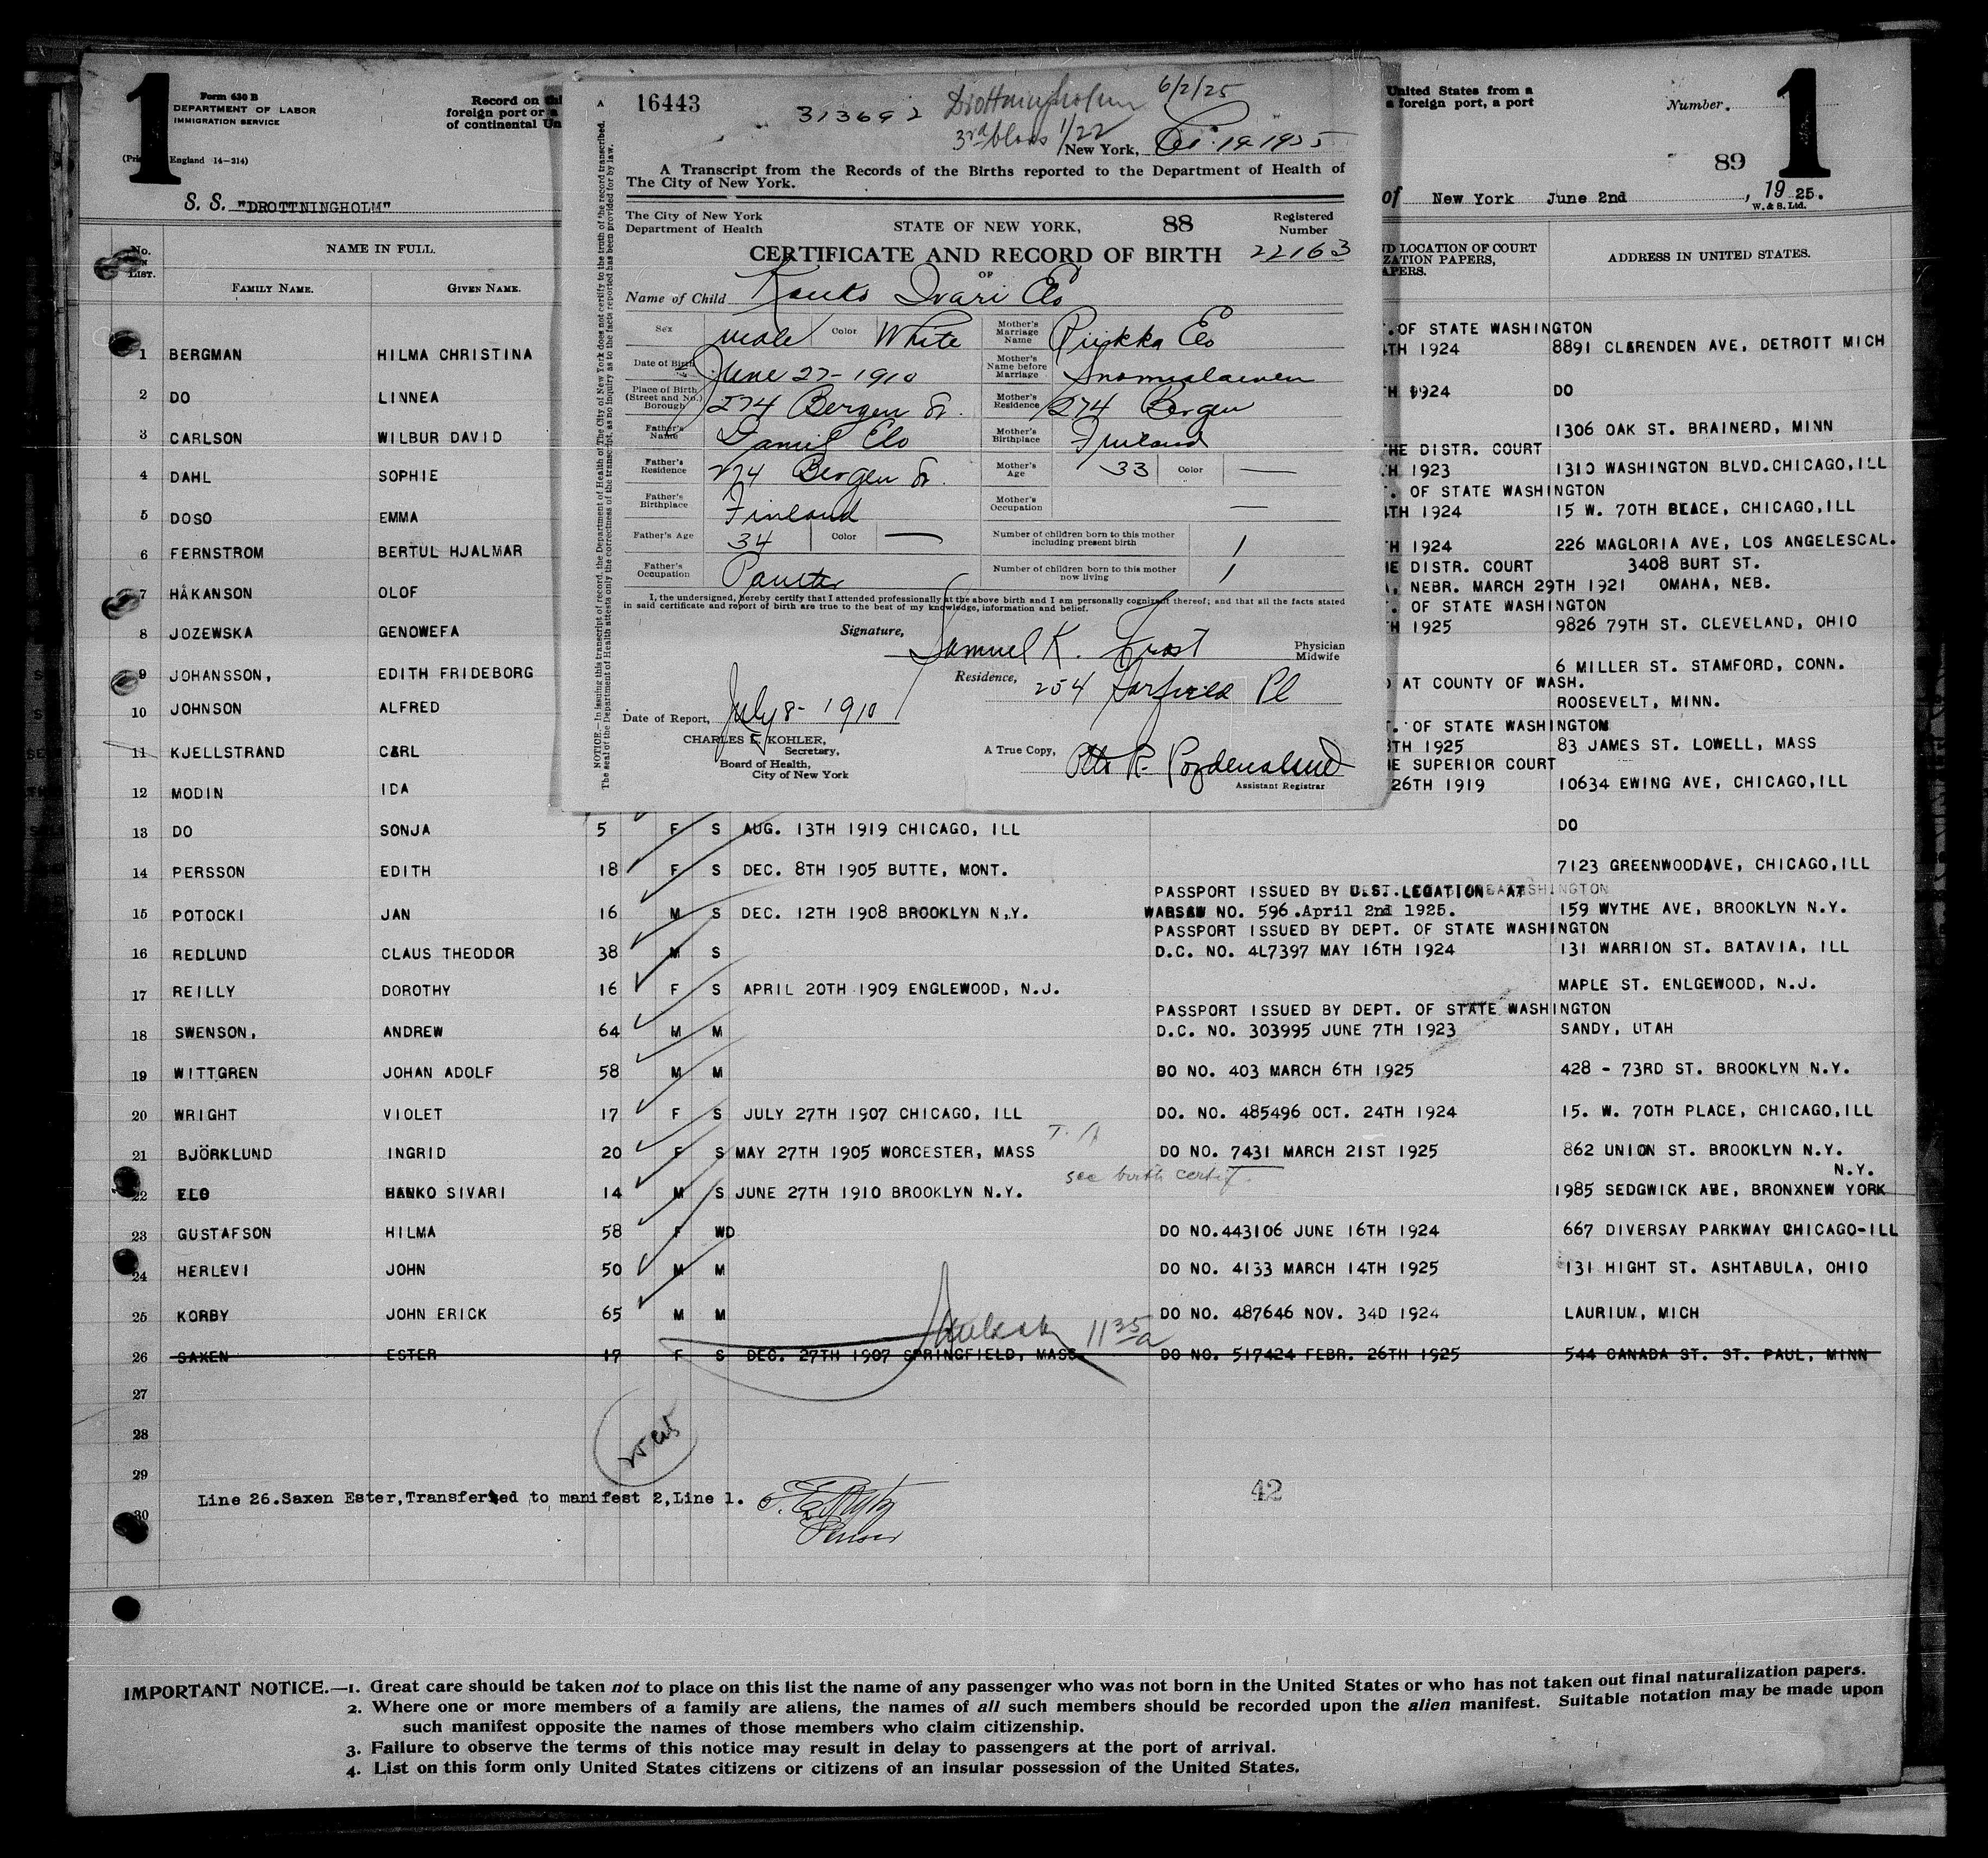 1
Form 630 B
DEPARTMENT OF LABOR
IMMIGRATION SERVICE
England 14-314)
Record on
foreign port or a
of continental Un
S. S. "DROTTNINGHOLM"
United States from a
a foreign port, a port
Number
89
1
of New York June 2nd, 1925.
W. & S. Ltd.
No. ON LIST.
NAME IN FULL.
FAMILY NAME. GIVEN NAME.
ND LOCATION OF COURT
ZATION PAPERS,
APERS.
ADDRESS IN UNITED STATES.
16443
313692 Drottningholm 6/2/25
3rd Class 1/22
New York, 19 1925
A Transcript from the Records of the Births reported to the Department of Health of
The City of New York.
The City of New York
Department of Health
STATE OF NEW YORK, 88
Registered Number 22163
CERTIFICATE AND RECORD OF BIRTH
OF
Name of Child Kauko Ivari Elo
Sex male Color White Mother's Marriage Name Piikka Elo
Date of Birth June 27-1910 Mother's Name before Marriage
Place of Birth (Street and No.) Borough 274 Bergen St. Mother's Residence 274 Bergen
Father's Name Elo Mother's Birthplace Finland
Father's Residence 274 Bergen St. Mother's Age 33 Color —
Father's Birthplace Finland Mother's Occupation —
Father's Age 34 Color — Number of children born to this mother including present birth 1
Father's Occupation Painter Number of children born to this mother now living 1
I, the undersigned, hereby certify that I attended professionally at the above birth and I am personally cognizant thereof; and that all the facts stated
in said certificate and report of birth are true to the best of my knowledge, information and belief.
Signature, Samuel K. Frost Physician Midwife
Residence, 254 Garfield Pl
Date of Report, July 8- 1910
CHARLES L. KOHLER,
Secretary,
Board of Health,
City of New York
A True Copy,
Assistant Registrar
NOTICE.—In issuing this transcript of record, the Department of Health of The City of New York does not certify to the truth of the record transcribed.
The seal of the Department of Health attests only the correctness of the transcript, as no inquiry as to the facts reported has been provided for by law.
. OF STATE WASHINGTON
1 BERGMAN HILMA CHRISTINA 4TH 1924 8891 CLARENDEN AVE, DETROTT MICH
2 DO LINNEA H 1924 DO
3 CARLSON WILBUR DAVID 1306 OAK ST. BRAINERD, MINN
HE DISTR. COURT
4 DAHL SOPHIE H 1923 1310 WASHINGTON BLVD.CHICAGO,ILL
. OF STATE WASHINGTON
5 DOSO EMMA 4TH 1924 15 W. 70TH BLACE, CHICAGO,ILL
6 FERNSTROM BERTUL HJALMAR H 1924 226 MAGLORIA AVE, LOS ANGELESCAL.
HE DISTR. COURT 3408 BURT ST.
7 HÅKANSON OLOF , NEBR. MARCH 29TH 1921 OMAHA, NEB.
. OF STATE WASHINGTON
8 JOZEWSKA GENOWEFA H 1925 9826 79TH ST. CLEVELAND, OHIO
9 JOHANSSON, EDITH FRIDEBORG 6 MILLER ST. STAMFORD, CONN.
AT COUNTY OF WASH.
10 JOHNSON ALFRED ROOSEVELT, MINN.
. OF STATE WASHINGTON
11 KJELLSTRAND CARL 8TH 1925 83 JAMES ST. LOWELL, MASS
HE SUPERIOR COURT
12 MODIN IDA 26TH 1919 10634 EWING AVE, CHICAGO,ILL
13 DO SONJA 5 F S AUG. 13TH 1919 CHICAGO, ILL DO
14 PERSSON EDITH 18 F S DEC. 8TH 1905 BUTTE, MONT. 7123 GREENWOODAVE, CHICAGO,ILL
PASSPORT ISSUED BY LEGATION AT
15 POTOCKI JAN 16 M S DEC. 12TH 1908 BROOKLYN N.Y. WARSAW NO. 596.April 2nd 1925. 159 WYTHE AVE, BROOKLYN N.Y.
PASSPORT ISSUED BY DEPT. OF STATE WASHINGTON
16 REDLUND CLAUS THEODOR 38 M S D.C. NO. 4L7397 MAY 16TH 1924 131 WARRION ST. BATAVIA, ILL
17 REILLY DOROTHY 16 F S APRIL 20TH 1909 ENGLEWOOD, N.J. MAPLE ST. ENLGEWOOD, N.J.
PASSPORT ISSUED BY DEPT. OF STATE WASHINGTON
18 SWENSON, ANDREW 64 M M D.C. NO. 303995 JUNE 7TH 1923 SANDY, UTAH
19 WITTGREN JOHAN ADOLF 58 M M DO NO. 403 MARCH 6TH 1925 428 - 73RD ST. BROOKLYN N.Y.
20 WRIGHT VIOLET 17 F S JULY 27TH 1907 CHICAGO, ILL DO. NO. 485496 OCT. 24TH 1924 15. W. 70TH PLACE, CHICAGO,ILL
21 BJÖRKLUND INGRID 20 F S MAY 27TH 1905 WORCESTER, MASS DO NO. 7431 MARCH 21ST 1925 862 UNION ST. BROOKLYN N.Y.
see birth certif. N.Y.
22 ELO HANKO SIVARI 14 M S JUNE 27TH 1910 BROOKLYN N.Y. 1985 SEDGWICK AVE, BRONXNEW YORK
23 GUSTAFSON HILMA 58 F WD DO NO.443106 JUNE 16TH 1924 667 DIVERSAY PARKWAY CHICAGO-ILL
24 HERLEVI JOHN 50 M M DO NO. 4133 MARCH 14TH 1925 131 HIGHT ST. ASHTABULA, OHIO
25 KORBY JOHN ERICK 65 M M DO NO. 487646 NOV. 34D 1924 LAURIUM, MICH
1135a
26 SAXEN ESTER 17 F S DEC. 27TH 1907 SPRINGFIELD, MASS DO NO. 517424 FEBR. 26TH 1925 544 CANADA ST. ST. PAUL, MINN
27
28
29
Line 26.Saxen Ester,Transferred to manifest 2,Line 1. 42
30 Purser
IMPORTANT NOTICE.—1. Great care should be taken not to place on this list the name of any passenger who was not born in the United States or who has not taken out final naturalization papers.
2. Where one or more members of a family are aliens, the names of all such members should be recorded upon the alien manifest. Suitable notation may be made upon
such manifest opposite the names of those members who claim citizenship.
3. Failure to observe the terms of this notice may result in delay to passengers at the port of arrival.
4. List on this form only United States citizens or citizens of an insular possession of the United States.